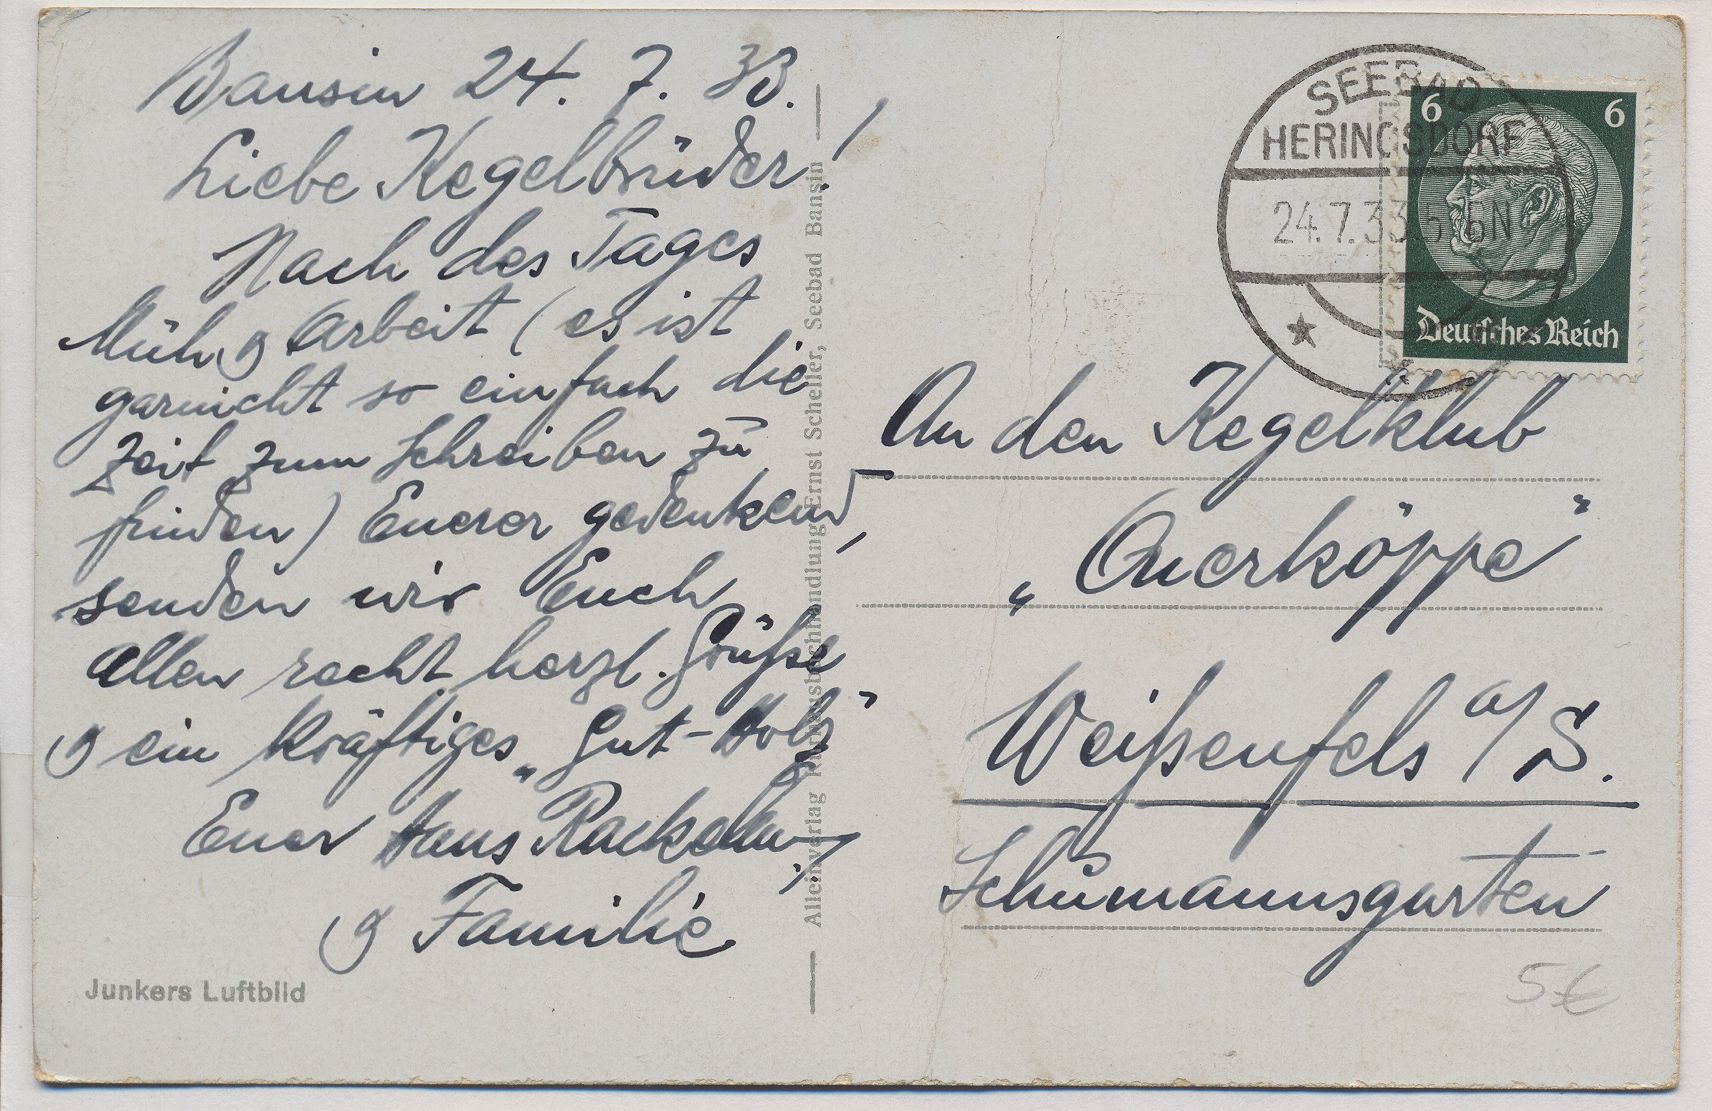 Bansin 24. 7. 33.
Liebe Kegelbrüder!
Nach des Tages
Müh & Arbeit (es ist
garnicht so einfach die
Zeit zum Schreiben zu
finden) Euerer gedenkend,
senden wir Euch
Allen recht herzl. Grüße
& ein kräftiges „Gut-Holz"
Euer Hans
& Familie
Junkers Luftbild
Alleinverlag Ernst Scheller, Seebad Bansin
SEEBAD
HERINGSDORF
24.7.33 5-6N
6 6
Deutsches Reich
An den Kegelklub
„Querköppe"
Weißenfels a/S.
Schumannsgarten
5€